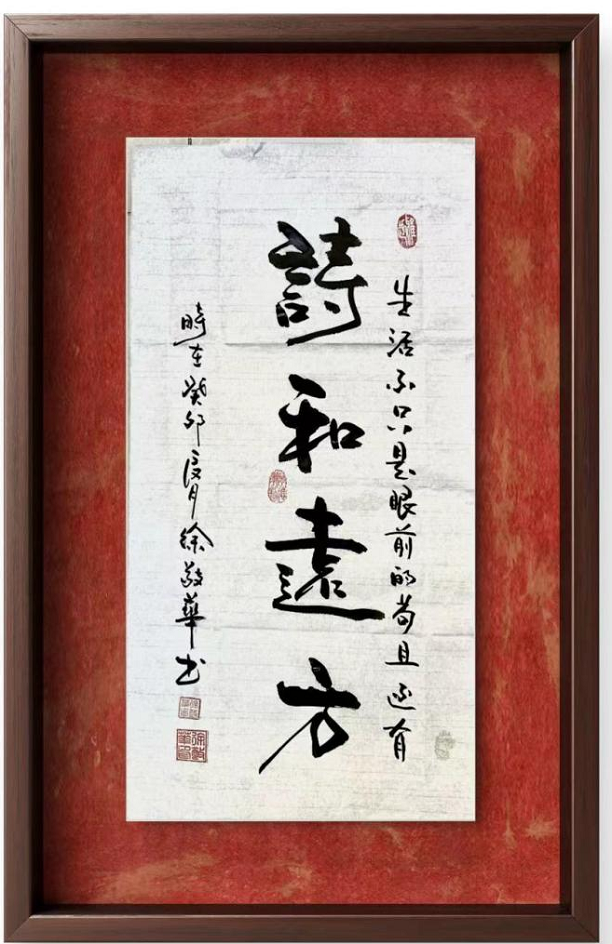 生活不只是眼前的苟且还有
詩和遠方
時在癸卯夏月徐敬華书